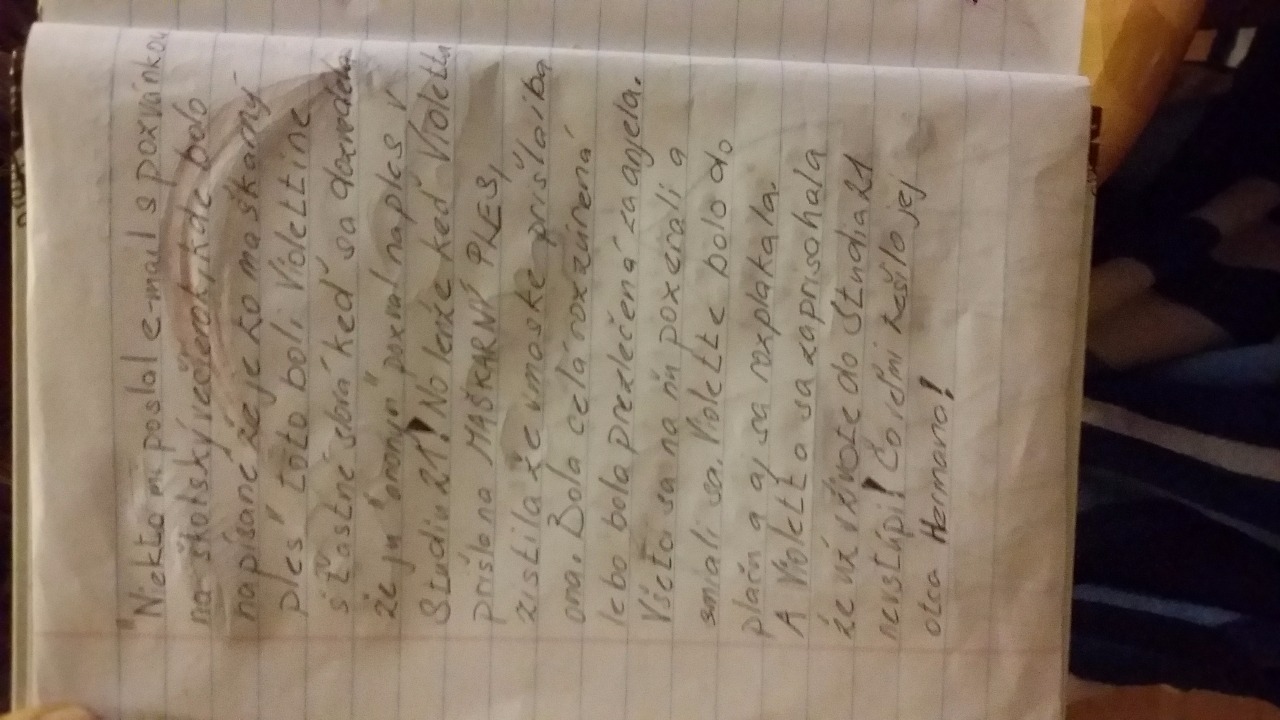 "Niekto mi poslal e-mail s pozvánkou
na školský večierok, kde bolo
napísané že je to maškarný
ples" toto boli Violettine
šťastné slová keď sa dozvedela
že ju "anonym" pozval na ples v
Studiu 21! No lenže keď Violetta
prišla na MAŠKARNÝ PLES,
zistila že v maske prišla iba
ona. Bola celá rozzúrená
lebo bola prezlečená za anjela.
Všetci sa na ňu pozerali a
smiali sa. Violette bolo do
plaču a aj sa rozplakala.
A Violetta sa zaprisahala
že už v živote do Studia 21
nevstúpi! Čo veľmi tešilo jej
otca Hermana!